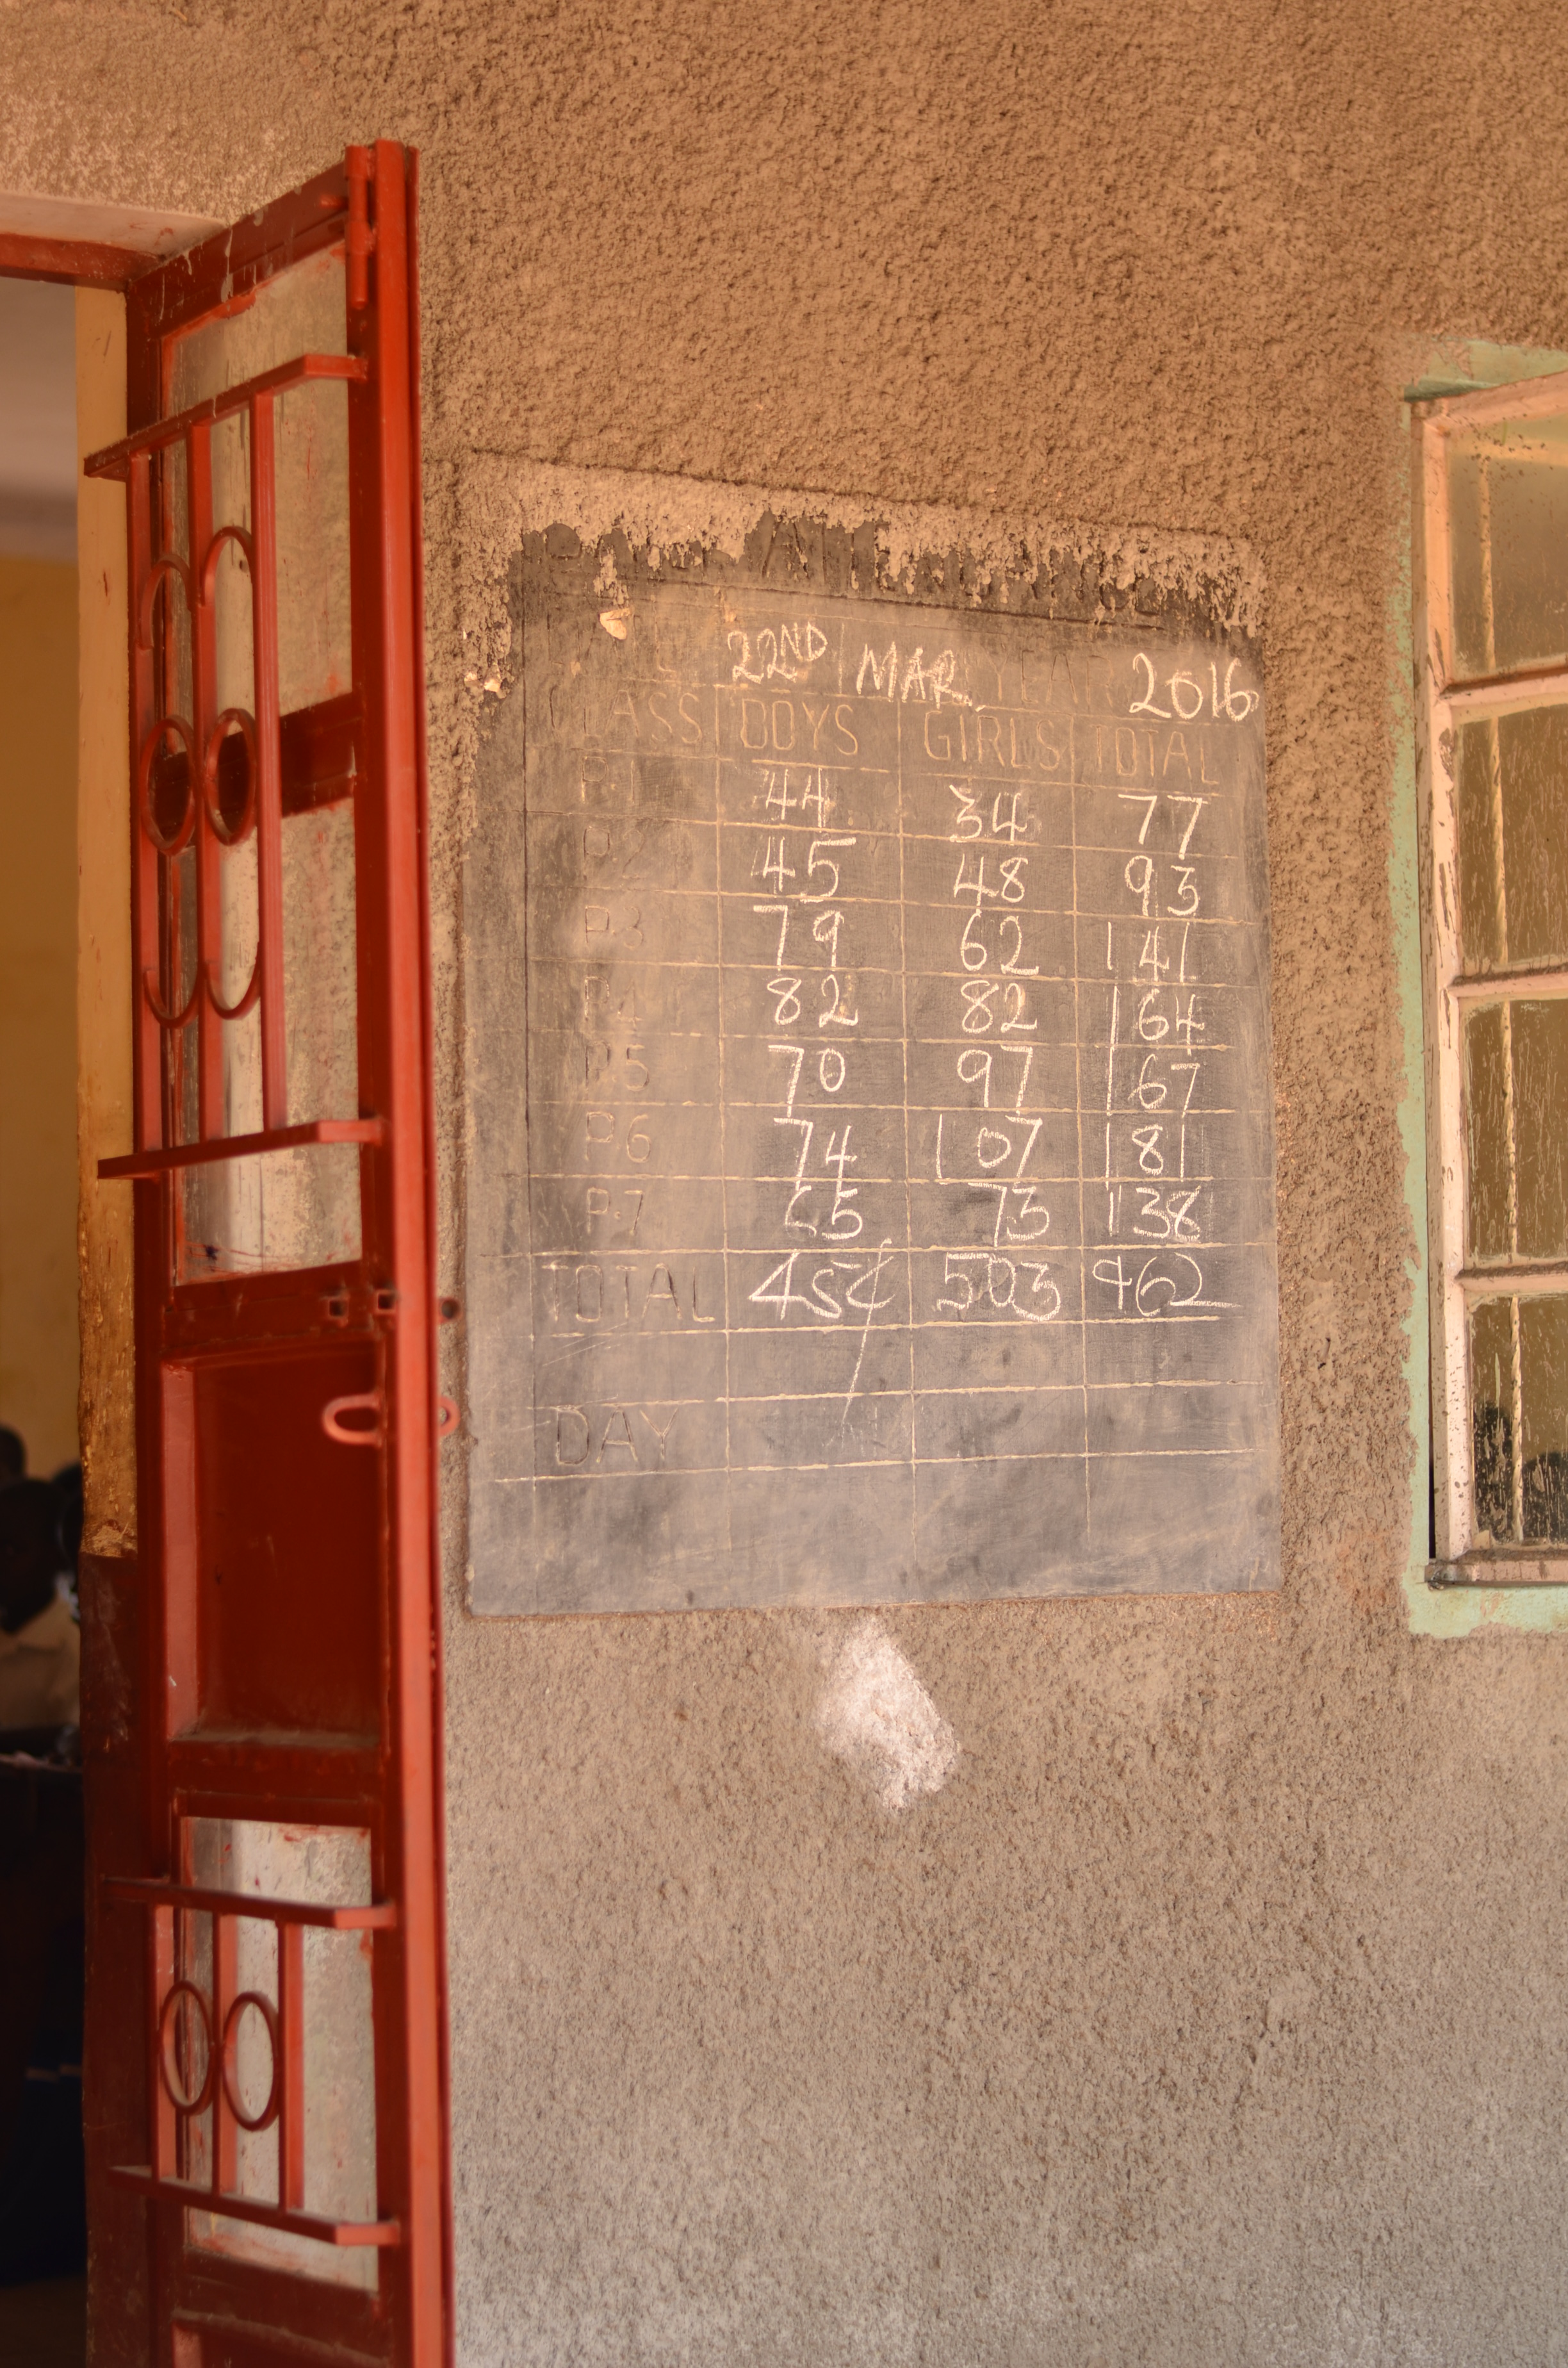 22ND MAR. YEAR 2016
CLASS BOYS GIRLS TOTAL
P.1 44 34 77
P.2 45 48 93
P.3 79 62 141
P.4 82 82 164
P.5 70 97 167
P.6 74 107 181
P.7 65 73 138
TOTAL 454 503 962
DAY